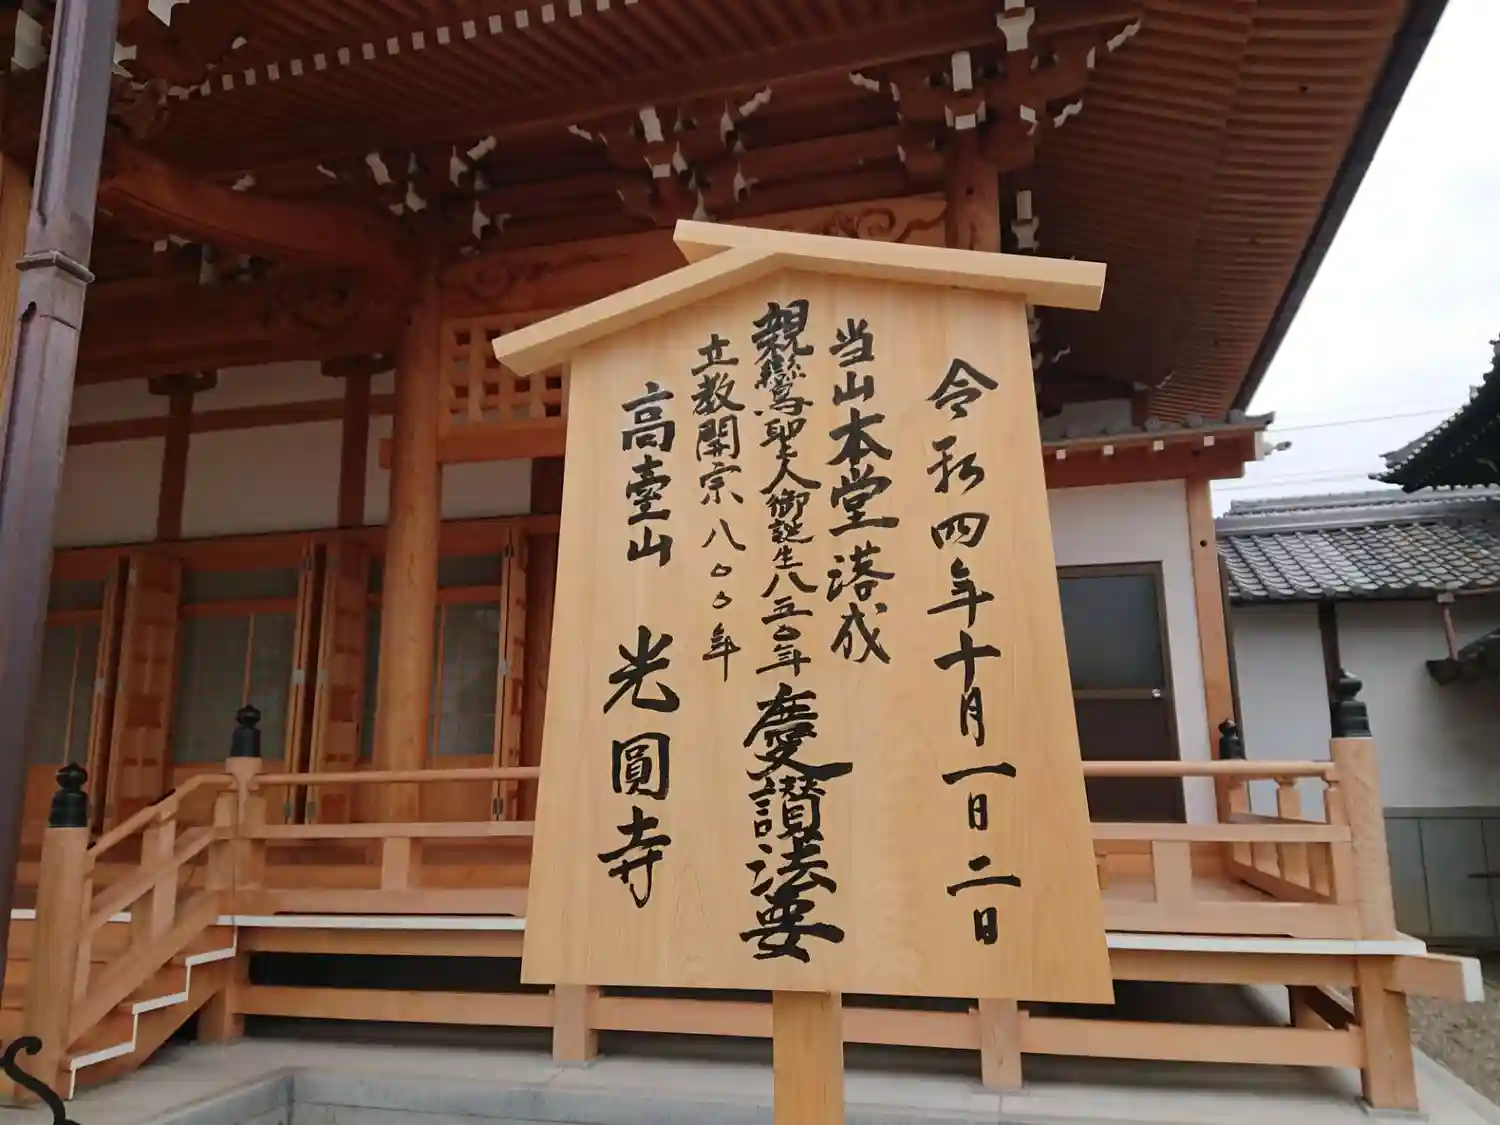 令和四年十月一日二日
当山本堂落成
親鸞聖人御誕生八五〇年慶讃法要
立教開宗八〇〇年
高臺山 光圓寺